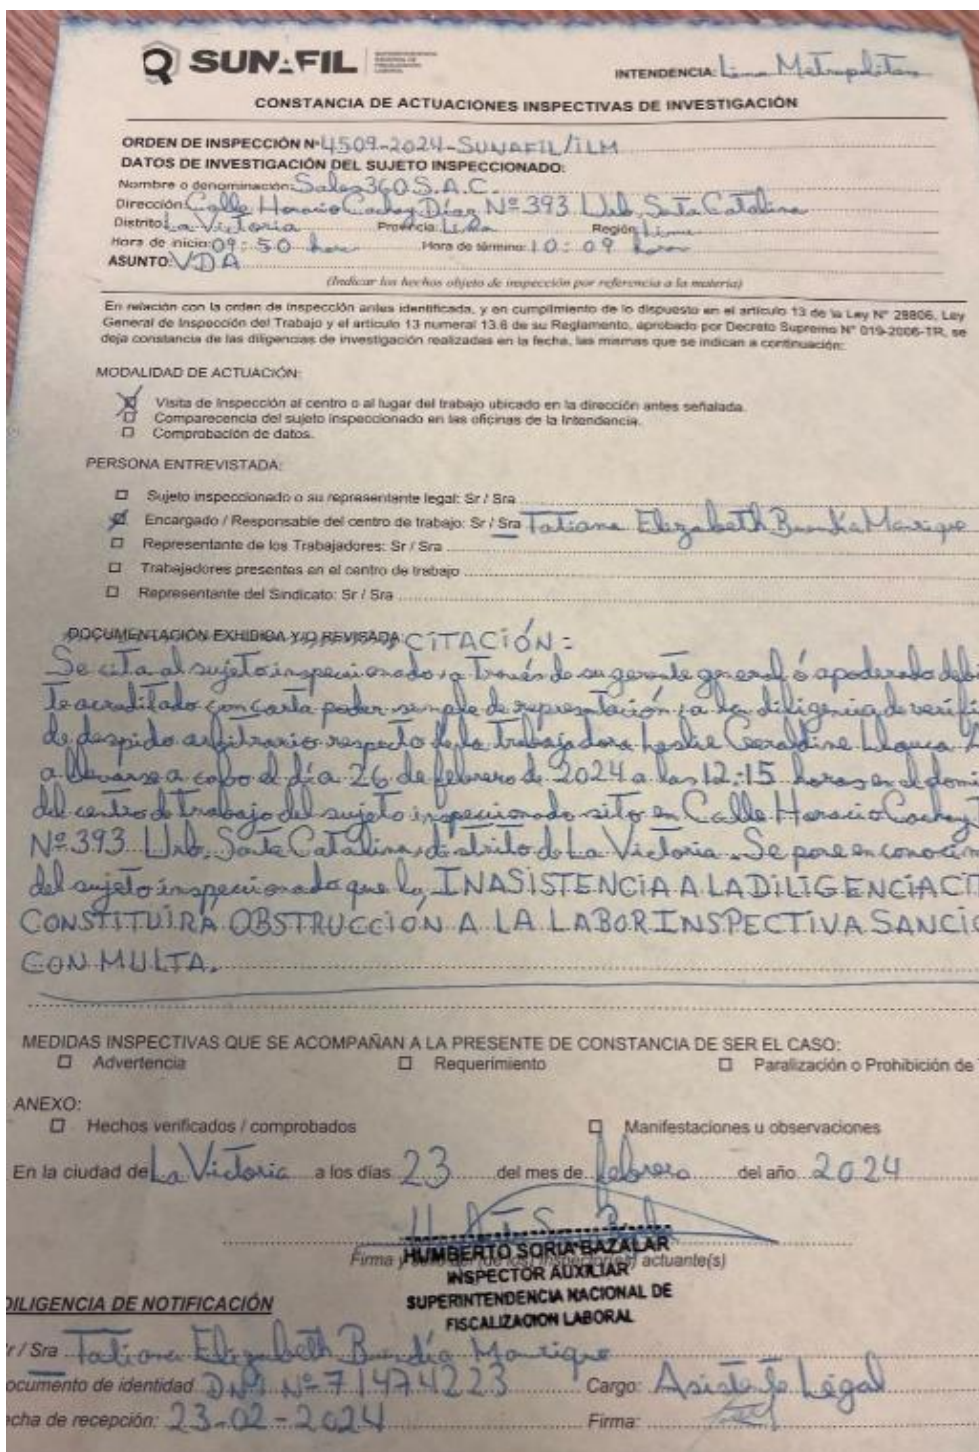 SUNAFIL
SUPERINTENDENCIA NACIONAL DE FISCALIZACIÓN LABORAL
INTENDENCIA: Lima Metropolitana
CONSTANCIA DE ACTUACIONES INSPECTIVAS DE INVESTIGACIÓN
ORDEN DE INSPECCIÓN Nº 4509-2024-SUNAFIL/ILM
DATOS DE INVESTIGACIÓN DEL SUJETO INSPECCIONADO:
Nombre o denominación: Sales360 S.A.C.
Dirección: Calle Horacio Cachay Díaz Nº 393 Urb. Santa Catalina
Distrito: La Victoria Provincia: Lima Región: Lima
Hora de inicio: 09:50 horas Hora de término: 10:09 horas
ASUNTO: VDA
(Indicar los hechos objeto de inspección por referencia a la materia)
En relación con la orden de inspección antes identificada, y en cumplimiento de lo dispuesto en el artículo 13 de la Ley N° 28806, Ley
General de Inspección del Trabajo y el artículo 13 numeral 13.6 de su Reglamento, aprobado por Decreto Supremo N° 019-2006-TR, se
deja constancia de las diligencias de investigación realizadas en la fecha, las mismas que se indican a continuación:
MODALIDAD DE ACTUACIÓN:
Visita de Inspección al centro o al lugar del trabajo ubicado en la dirección antes señalada.
Comparecencia del sujeto inspeccionado en las oficinas de la Intendencia.
Comprobación de datos.
PERSONA ENTREVISTADA:
Sujeto inspeccionado o su representante legal: Sr / Sra
Encargado / Responsable del centro de trabajo: Sr / Sra Tatiana Elizabeth Buendía Manrique
Representante de los Trabajadores: Sr / Sra
Trabajadores presentes en el centro de trabajo
Representante del Sindicato: Sr / Sra
DOCUMENTACIÓN EXHIBIDA Y/O REVISADA: CITACIÓN:
Se cita al sujeto inspeccionado, a través de su gerente general ó apoderado debi
te acreditado con carta poder simple de representación, a la diligencia de verifi
de despido arbitrario respecto de la trabajadora Leslie Geraldine Llauca A
a llevarse a cabo el día 26 de febrero de 2024 a las 12:15 horas en el domi
del centro de trabajo del sujeto inspeccionado sito en Calle Horacio Cachay
Nº 393 Urb. Santa Catalina, distrito de La Victoria. Se pone en conocim
del sujeto inspeccionado que la, INASISTENCIA A LA DILIGENCIA CIT
CONSTITUIRÁ OBSTRUCCIÓN A LA LABOR INSPECTIVA SANCIO
CON MULTA.
MEDIDAS INSPECTIVAS QUE SE ACOMPAÑAN A LA PRESENTE DE CONSTANCIA DE SER EL CASO:
Advertencia Requerimiento Paralización o Prohibición de
ANEXO:
Hechos verificados / comprobados Manifestaciones u observaciones
En la ciudad de La Victoria a los días 23 del mes de febrero del año 2024
Firma y sello del (de los) inspector(es) actuante(s)
HUMBERTO SORIA BAZALAR
INSPECTOR AUXILIAR
SUPERINTENDENCIA NACIONAL DE
FISCALIZACION LABORAL
DILIGENCIA DE NOTIFICACIÓN
r / Sra Tatiana Elizabeth Buendía Manrique
ocumento de identidad DNI Nº 71474223 Cargo: Asistente Legal
echa de recepción: 23-02-2024 Firma: